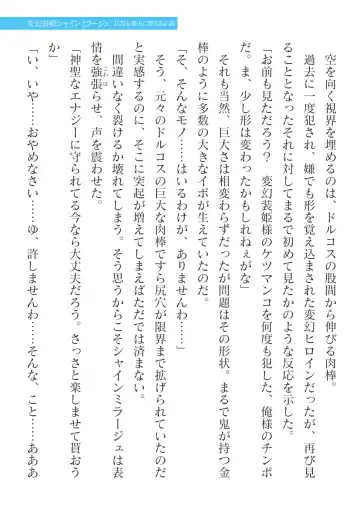 変幻装姫シャインミラージュ
空を向く視界を埋めるのは、ドルコスの股間から伸びる肉棒。
過去に一度犯され、嫌でも形を覚え込まされた変幻ヒロインだったが、再び見
ることとなったそれに対してまるで初めて見たかのような反応を示した。
「お前も見ただろう？　変幻装姫様のケツマンコを何度も犯した、俺様のチンポ
だ。ま、少し形は変わったかもしれねぇがな」
それも当然、巨大さは相変わらずだったが問題はその形状。まるで鬼が持つ金
棒のように多数の大きなイボが生えていたのだ。
「そ、そんなモノ……はいるわけが、ありませんわ……」
そう、元々のドルコスの巨大な肉棒ですら尻穴が限界まで拡げられていたのだ
と実感するのに、そこに突起が増えてしまえばただでは済まない。
間違いなく裂けるか壊れてしまう。そう思うからこそシャインミラージュは表
情を強張らせ、声を震わせた。
「神聖なエナジーに守られてる今なら大丈夫だろう。さっさと挿れさせて貰おう
か」
「い、いや……おやめなさい……ゆ、許しませんわ……そんな、こと……あああ